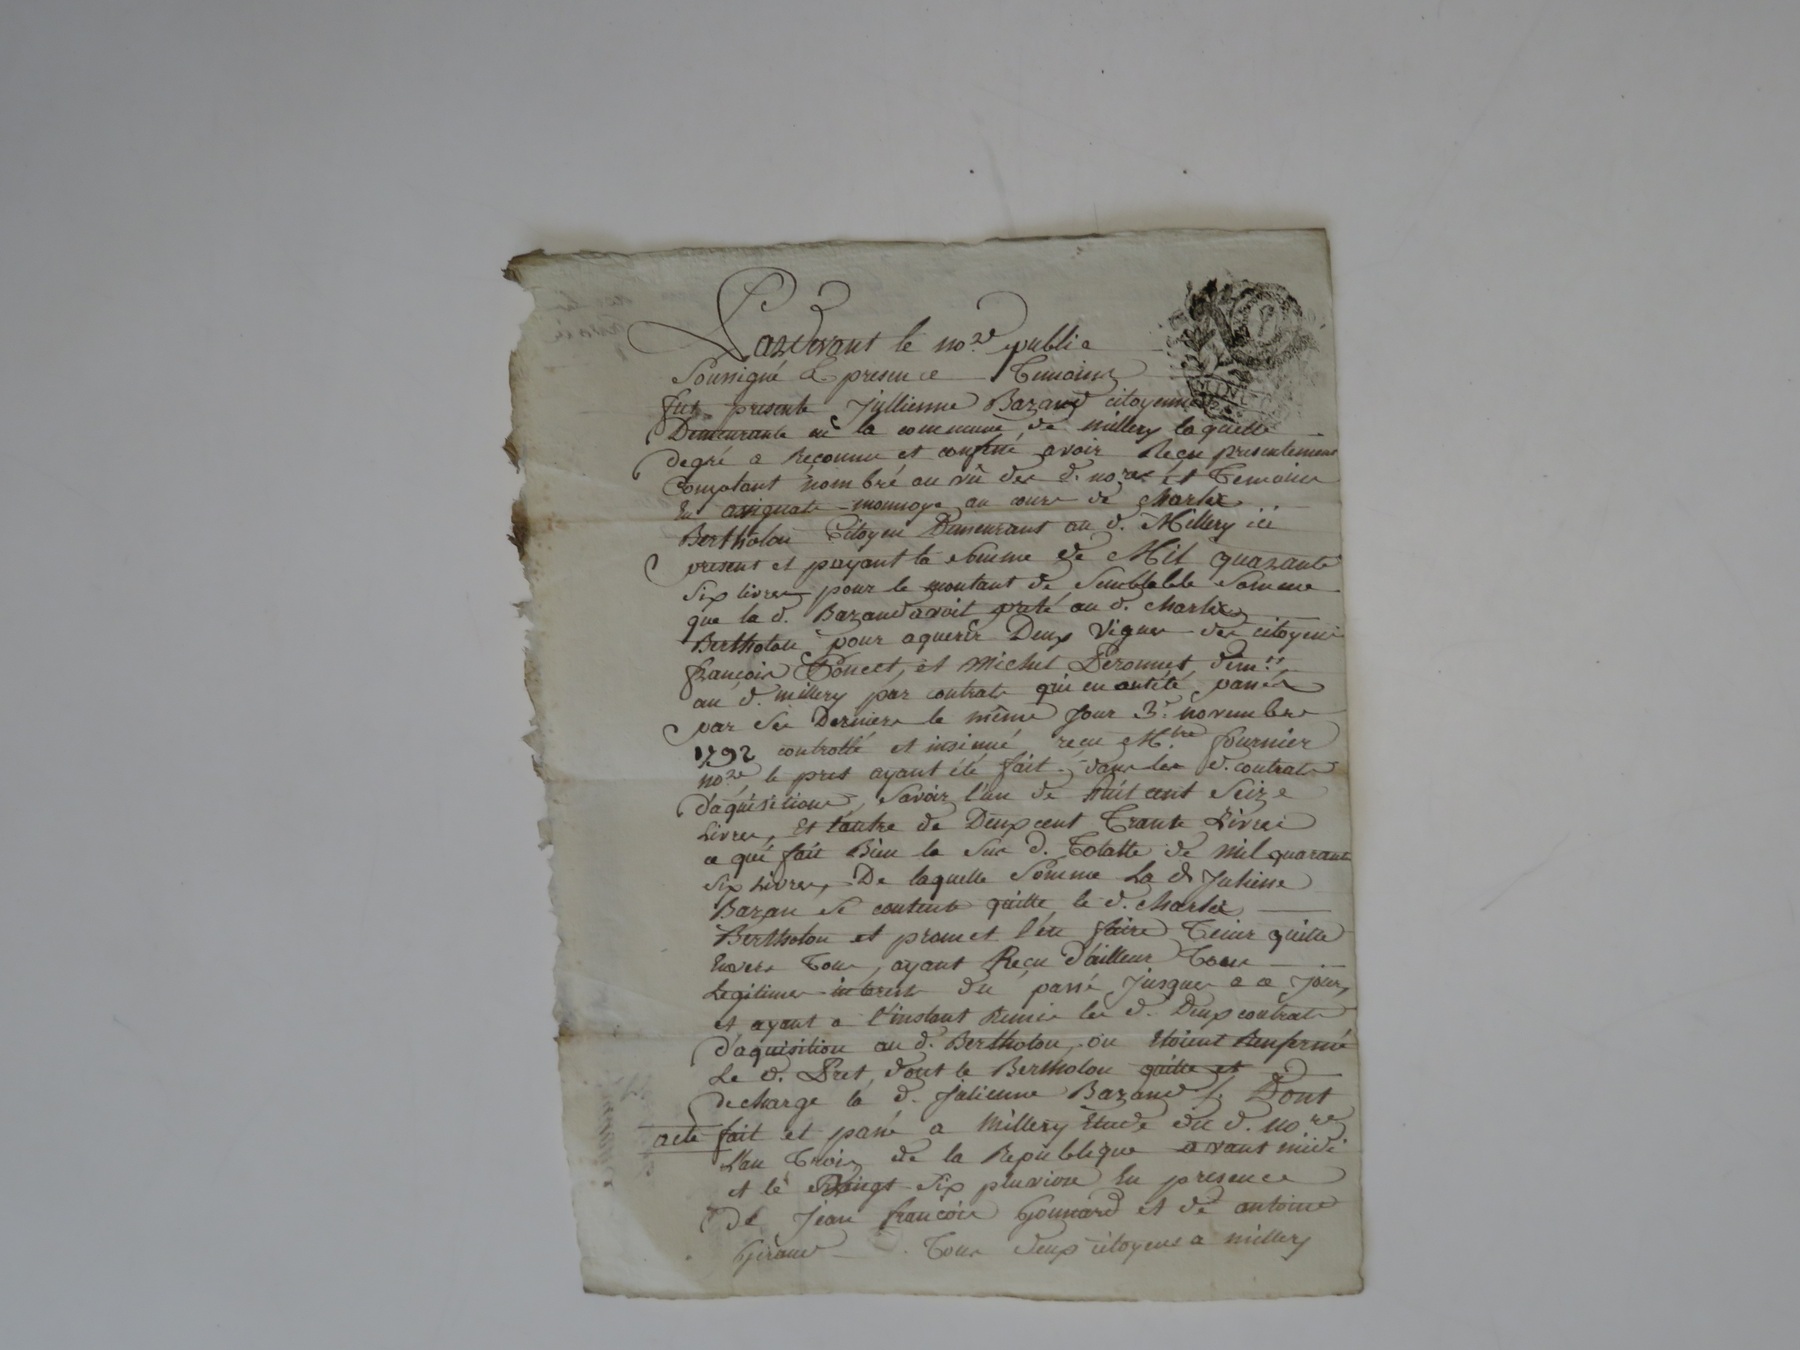 Pardevant le no.re public
Soussigné et presence Temoins
fut presente Jullienne Bazaud citoyenne
Demeurante en la commune de millery laquelle
degré a Reconnu et confessé avoir Reçu presentement
Comptant nombré au vû des d. no.res et Temoins
En assignats monnoye au cours de Charles
Bertholon Citoyen Demeurant au d. Millery ici
present et payant la somme de Mil quarante
Six livres pour le montant de Semblable Somme
que la d. Bazaud avoit preté au d. Charles
Bertholon pour aquerir Deux Vignes des citoyens
françois Poncet, et Michel Peronnet dem.ts
au d. millery par contrats qui en ont été passés
par Ses Derniers le même Jour 3.e novembre
1792 controllé et insinué reçu M.tre fournier
no.re le pret ayant été fait dans les d. contrats
d'aquisitions, Savoir l'un de Huit cent Seize
Livres, Et l'autre de Deux cent Trante Livres
ce qui fait Bien la Sus d. Totalle de mil quarante
Six Livres, De laquelle Somme La d. Julienne
Bazan Se contente quitte le d. Charles
Bertholon et promet l'en faire Tenir quitte
Envers Tous, ayant Reçu d'ailleur Tous
Legitimes interests du passé Jusques a ce Jour,
et ayant a l'instant Remis les d. Deux contrats
d'aquisition au d. Bertholon, ou Etoient Renfermé
Le d. Pret, dont le Bertholon quitte et
decharge la d. Julienne Bazaud Dont
acte fait et passé a Millery Etude du d. no.re
L'an Trois de la Republique avant midi
et le Vingt Six pluviose En presence
De Jean françois Gonnard et de antoine
Giraud Tous deux citoyens a millery